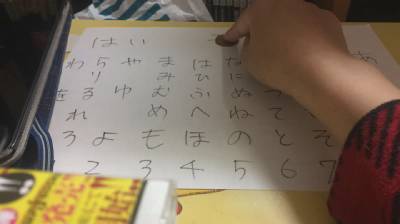 はい
わ ら や ま は な あ
り み ひ に
を る ゆ む ふ ぬ つ
れ め へ ね て
ろ よ も ほ の と そ
2 3 4 5 6 7